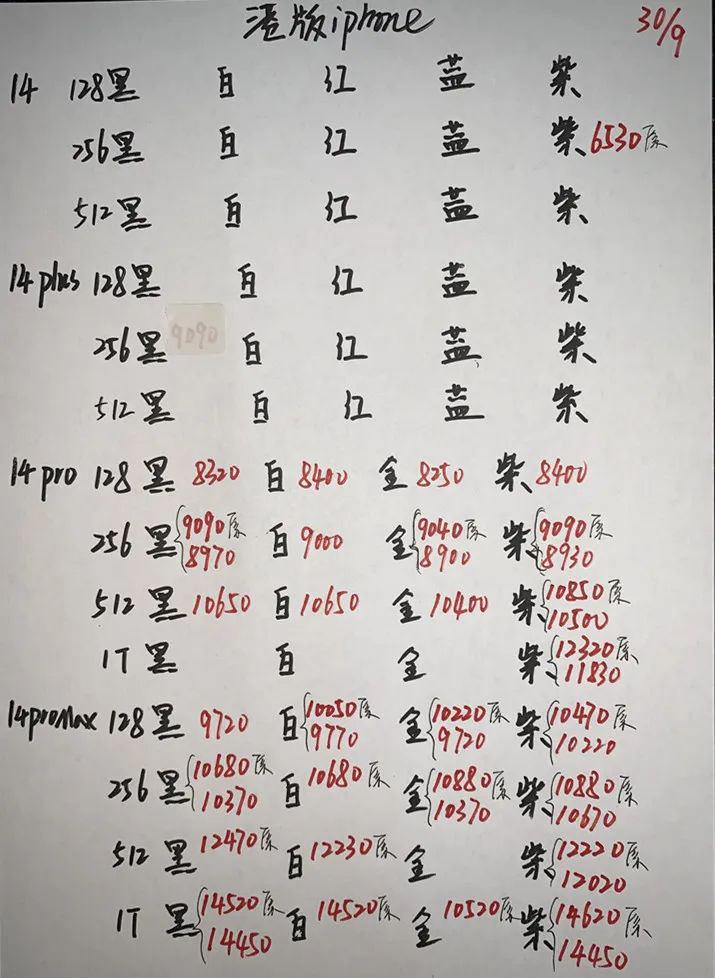 港版iphone 30/9
14 128黑 白 红 蓝 紫
256黑 白 红 蓝 紫 6530原
512黑 白 红 蓝 紫
14 plus 128黑 白 红 蓝 紫
256黑 9090 白 红 蓝 紫
512黑 白 红 蓝 紫
14 pro 128黑 8320 白 8400 金 8250 紫 8400
256黑 9090原 白 9000 金 9040原 紫 9090原
8970 8900 8930
512黑 10650 白 10650 金 10400 紫 10850原
10500
1T黑 白 金 紫 12320原
11830
14proMax 128黑 9720 白 10050原 金 10220原 紫 10470原
9770 9720 10220
256黑 10680原 白 10680原 金 10880原 紫 10880原
10370 10370 10670
512黑 12470原 白 12230原 金 紫 12220原
12020
1T黑 14520原 白 14520原 金 10520原 紫 14620原
14450 14450